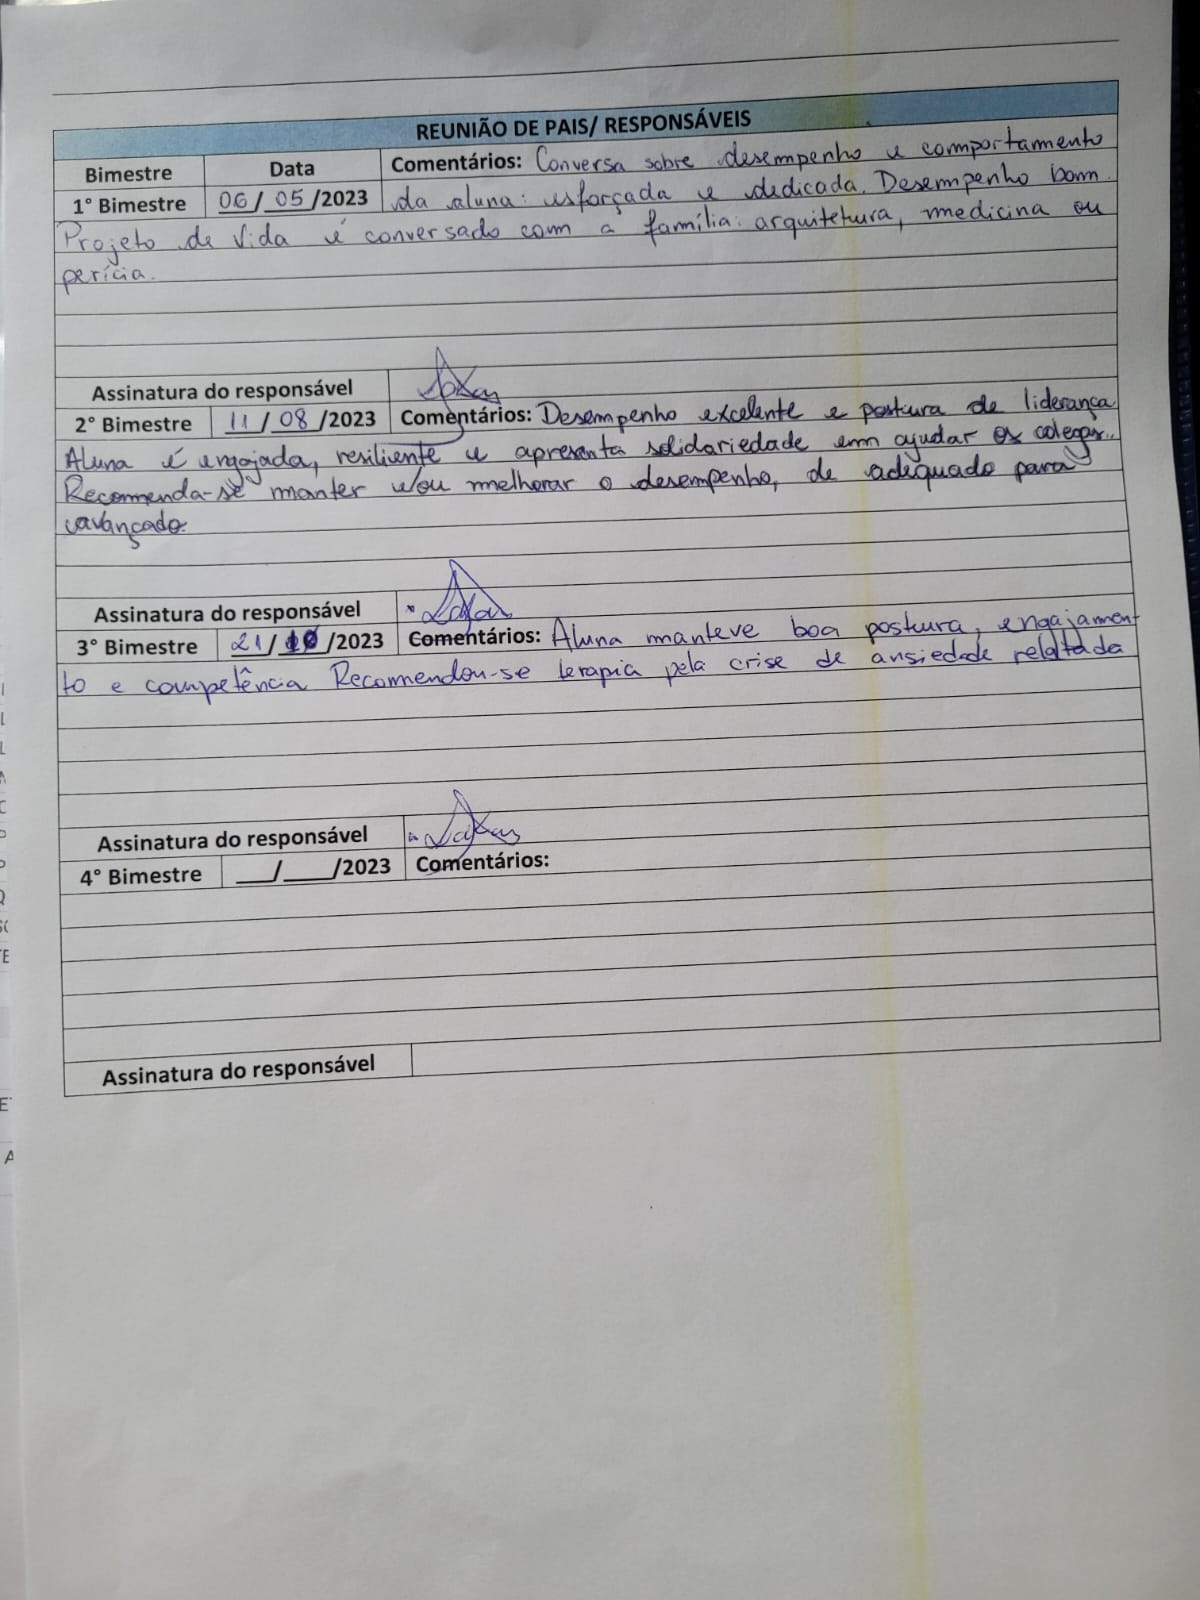 REUNIÃO DE PAIS/ RESPONSÁVEIS
Bimestre Data Comentários: Conversa sobre desempenho e comportamento
1° Bimestre 06/05/2023 da aluna: esforçada e dedicada. Desempenho bom.
Projeto de Vida é conversado com a família: arquitetura, medicina ou
perícia.
Assinatura do responsável
2° Bimestre 11/08/2023 Comentários: Desempenho excelente e postura de liderança
Aluna é engajada, resiliente e apresenta solidariedade em ajudar os colegas.
Recomenda-se manter e/ou melhorar o desempenho, de adequado para
avançado.
Assinatura do responsável
3° Bimestre 21/10/2023 Comentários: Aluna manteve boa postura, engajamen-
to e competência Recomendou-se terapia pela crise de ansiedade relatada
Assinatura do responsável
4° Bimestre ___/____/2023 Comentários:
Assinatura do responsável